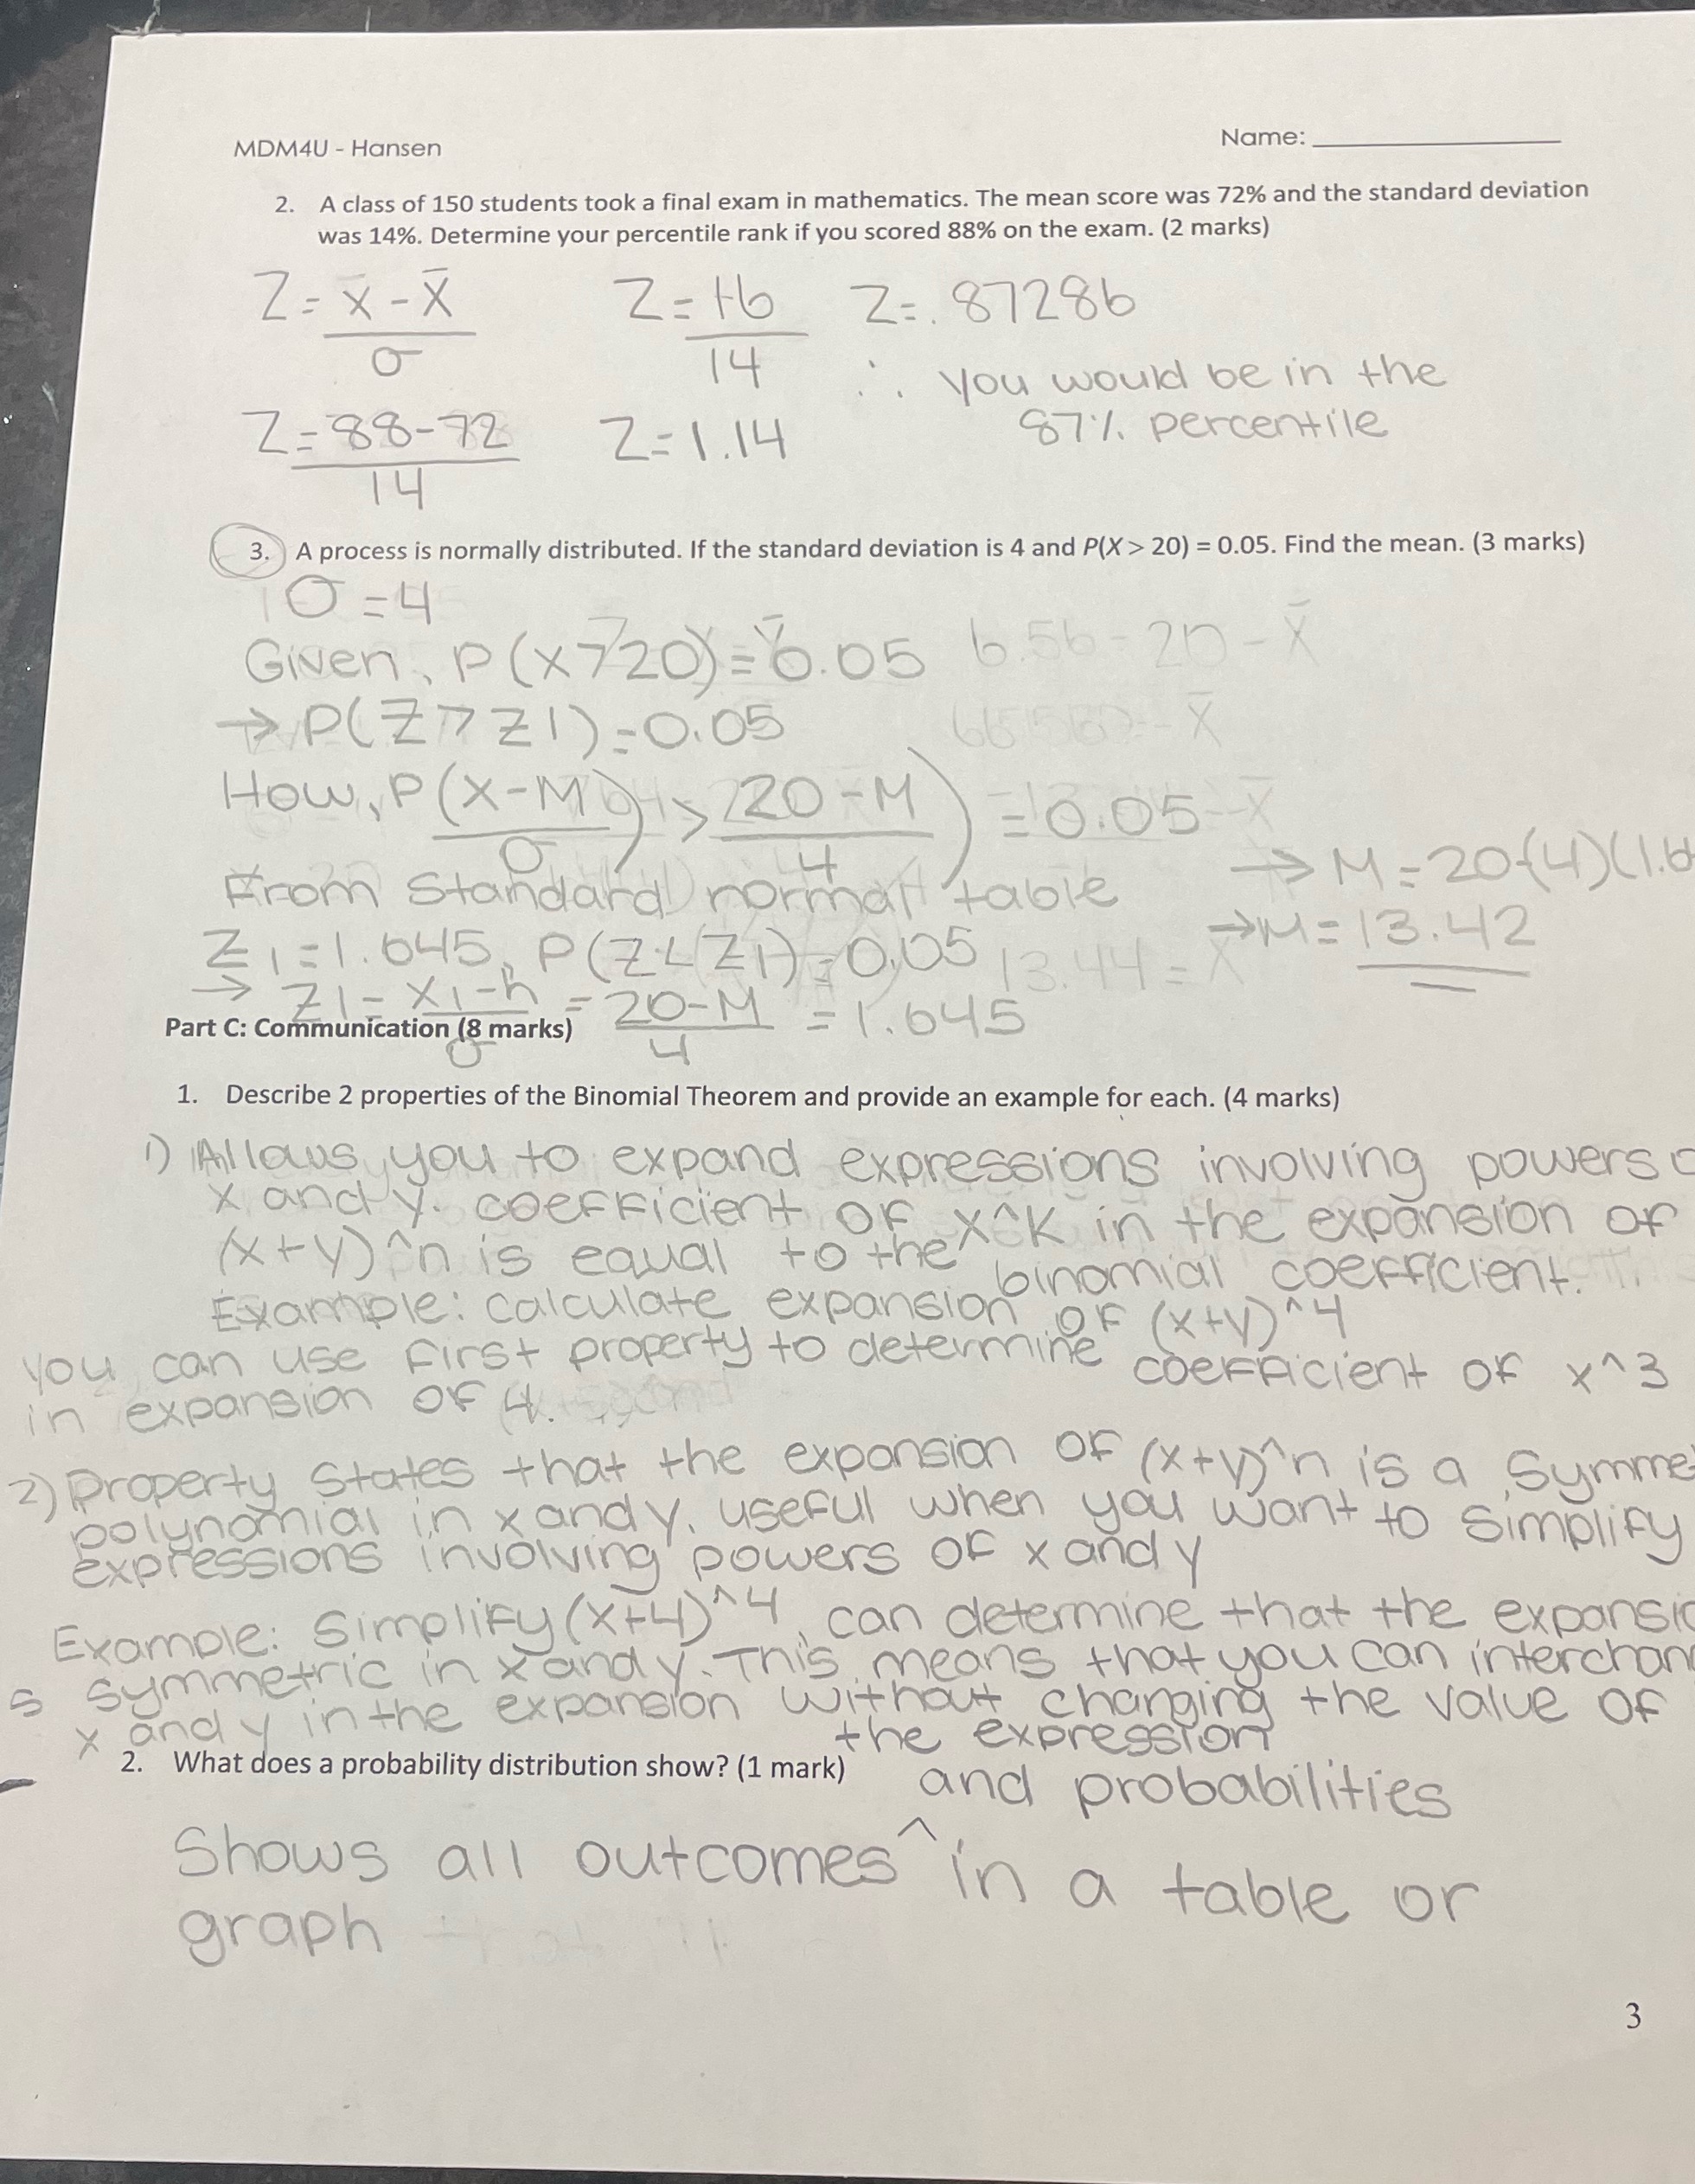 MDM4U - Hansen
Name:
2. A class of 150 students took a final exam in mathematics. The mean score was 72% and the standard deviation
was 14%. Determine your percentile rank if you scored 88% on the exam. (2 marks)
Z = x - x̄ / σ
Z = 16 / 14
Z = .87286
Z = 88-72 / 14
Z = 1.14
∴ you would be in the
87% percentile
3. A process is normally distributed. If the standard deviation is 4 and P(X > 20) = 0.05. Find the mean. (3 marks)
σ = 4
Given, P(x>20) = 0.05
6.56 - 20 - x̄
→ P(Z > Z1) = 0.05
How, P(x-M / σ) > 20-M / 4) = 0.05
From standard normal table
→ M = 20-(4)(1.6
Z1 = 1.645, P(Z<Z1) = 0.05
→ M = 13.42
13.44 = x̄
→ Z1 = x1-h / σ = 20-M / 4 = 1.645
Part C: Communication (8 marks)
1. Describe 2 properties of the Binomial Theorem and provide an example for each. (4 marks)
1) Allows you to expand expressions involving powers o
x and y. coefficient of x^k in the expansion of
(x+y)^n is equal to the binomial coefficient.
Example: calculate expansion of (x+y)^4
you can use first property to determine coefficient of x^3
in expansion of 4.
2) Property states that the expansion of (x+y)^n is a symme
polynomial in x and y. useful when you want to simplify
expressions involving powers of x and y
Example: Simplify (x+4)^4, can determine that the expansio
s symmetric in x and y. This means that you can interchan
x and y in the expansion without changing the value of
the expression
2. What does a probability distribution show? (1 mark)
and probabilities
Shows all outcomes ^ in a table or
graph
3